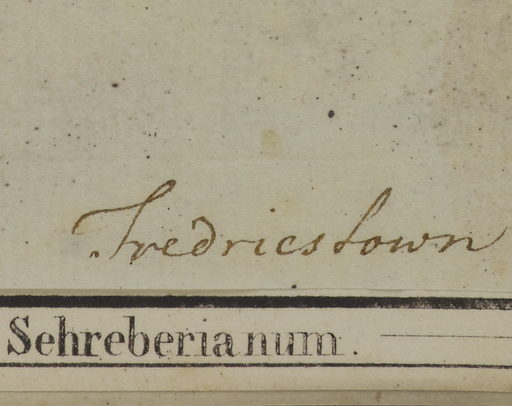 Fredricstown
Sehreberianum.